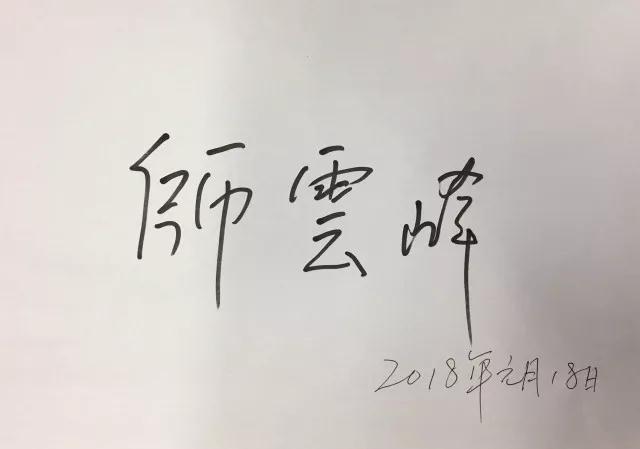 師雲峰
2018年元月18日